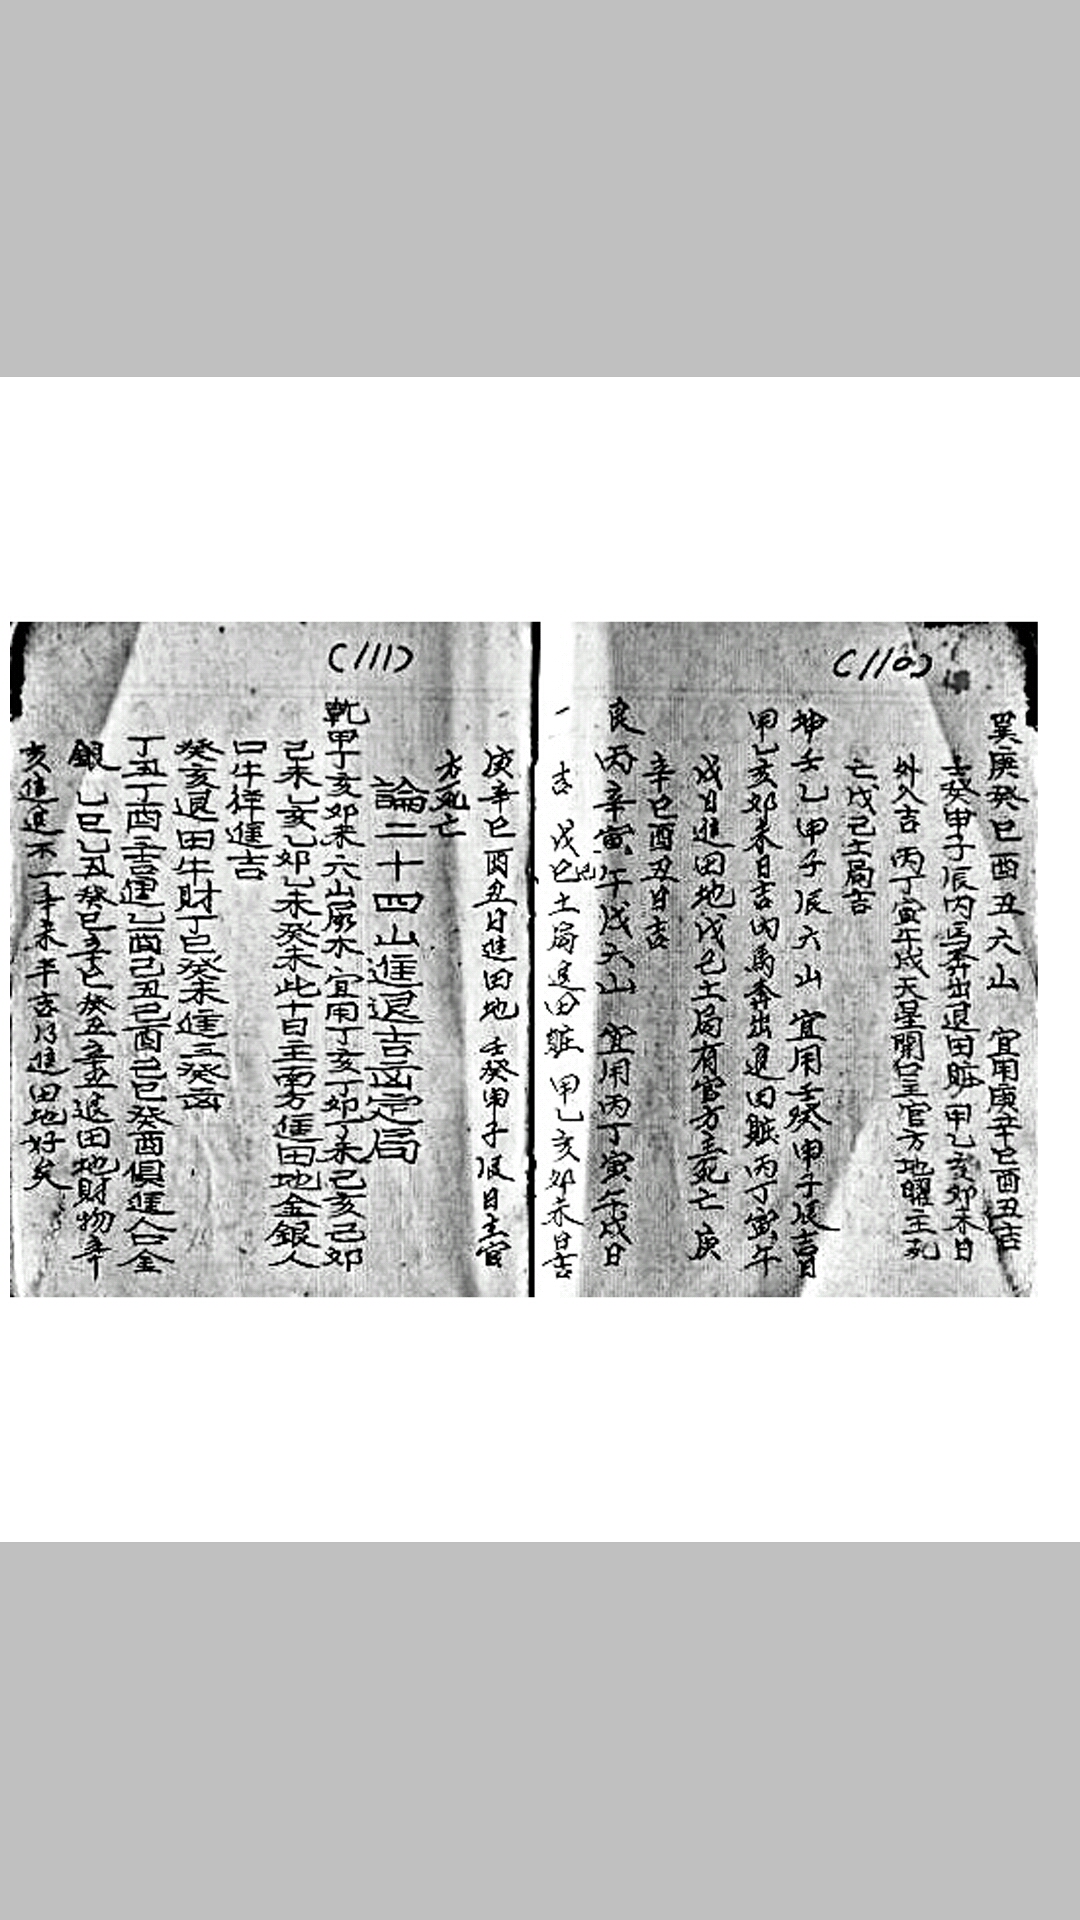 (110)
巽庚癸巳酉丑六山 宜用庚辛巳酉丑吉
壬癸申子辰内馬奔出退田賍甲乙亥卯未日
外入吉 丙丁寅午戌天星關位主官方地曜主死
亡戊己土局吉
坤壬乙申子辰六山 宜用壬癸申子辰吉日
甲乙亥卯未日吉内馬奔出進田賍丙丁寅午
戌日進田地戊己土局有官方主死亡 庚
辛巳酉丑日吉
艮丙辛寅午戌六山 宜用丙丁寅午戌日
一 吉 戊巳(己)土局進田賍 甲乙亥卯未日吉
(111)
庚辛巳酉丑日進田地 壬癸申子辰日主官
方死亡
論二十四山進退吉凶定局
乾甲丁亥卯未六山屬木宜用丁亥丁卯丁未己亥己卯
己未乙亥乙卯乙未癸未此十日主南方進田地金銀人
口牛徉進吉
癸亥退田牛財丁巳癸未進三癸酉
丁丑丁酉主吉運乙酉己丑己酉己巳癸酉俱進人口金
銀 乙巳乙丑癸巳辛巳癸丑辛丑退田地財物辛
亥進退不一辛未半吉乃進田地好矣